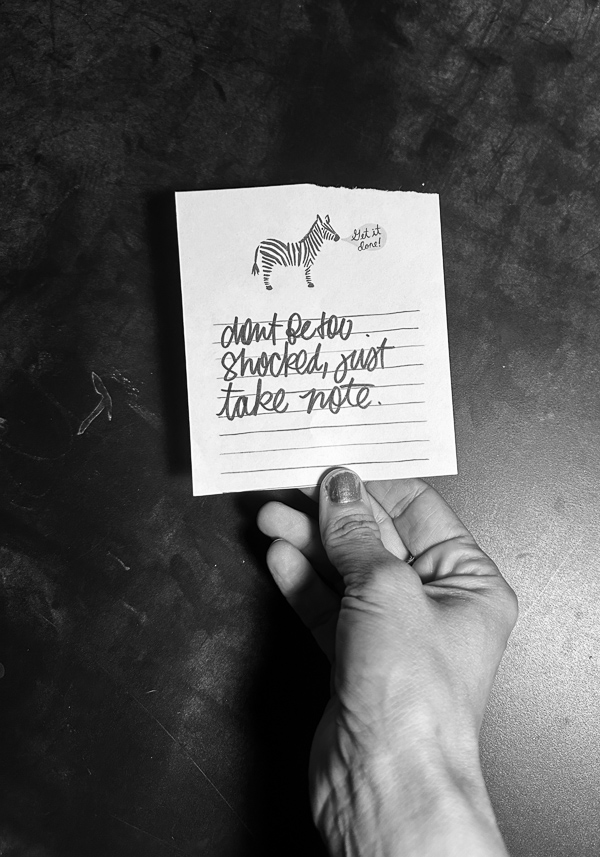 Get it
done!
dont be too.
shocked, just
take note.